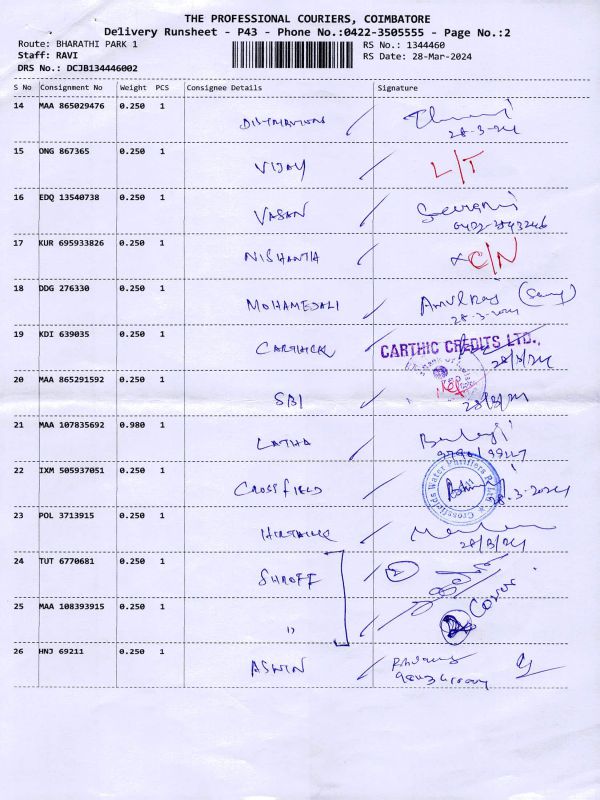 THE PROFESSIONAL COURIERS, COIMBATORE
Delivery Runsheet - P43 - Phone No.:0422-3505555 - Page No.:2
Route: BHARATHI PARK 1 RS No.: 1344460
Staff: RAVI RS Date: 28-Mar-2024
DRS No.: DCJB134446002
S No Consignment No Weight PCS Consignee Details Signature
14 MAA 865029476 0.250 1
28-3-24
15 ONG 867365 0.250 1 VIJAY L/T
16 EDQ 13540738 0.250 1 VASAN
17 KUR 695933826 0.250 1 NISHANTH C/N
18 DDG 276330 0.250 1 MOHAMEDALI
28-3-2024
19 KDI 639035 0.250 1 CARTHICK CARTHIC CREDITS LTD.,
28/3/24
20 MAA 865291592 0.250 1 SBI
28/3/24
21 MAA 107835692 0.980 1 LATHA Balaji
22 IXM 505937051 0.250 1 CROSSFIELD 28.3.2024
23 POL 3713915 0.250 1
28/3/24
24 TUT 6770681 0.250 1 SHROFF 2
25 MAA 108393915 0.250 1 " Cover
26 HNJ 69211 0.250 1 ASWIN